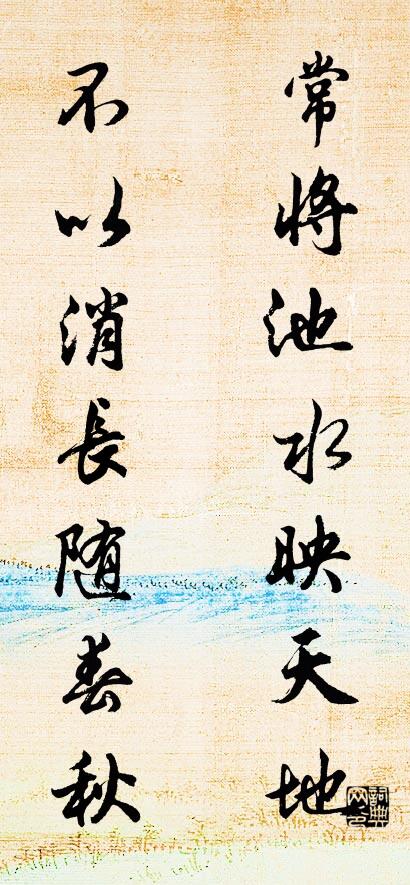 常將池水映天地
不以消長随春秋
詞典网